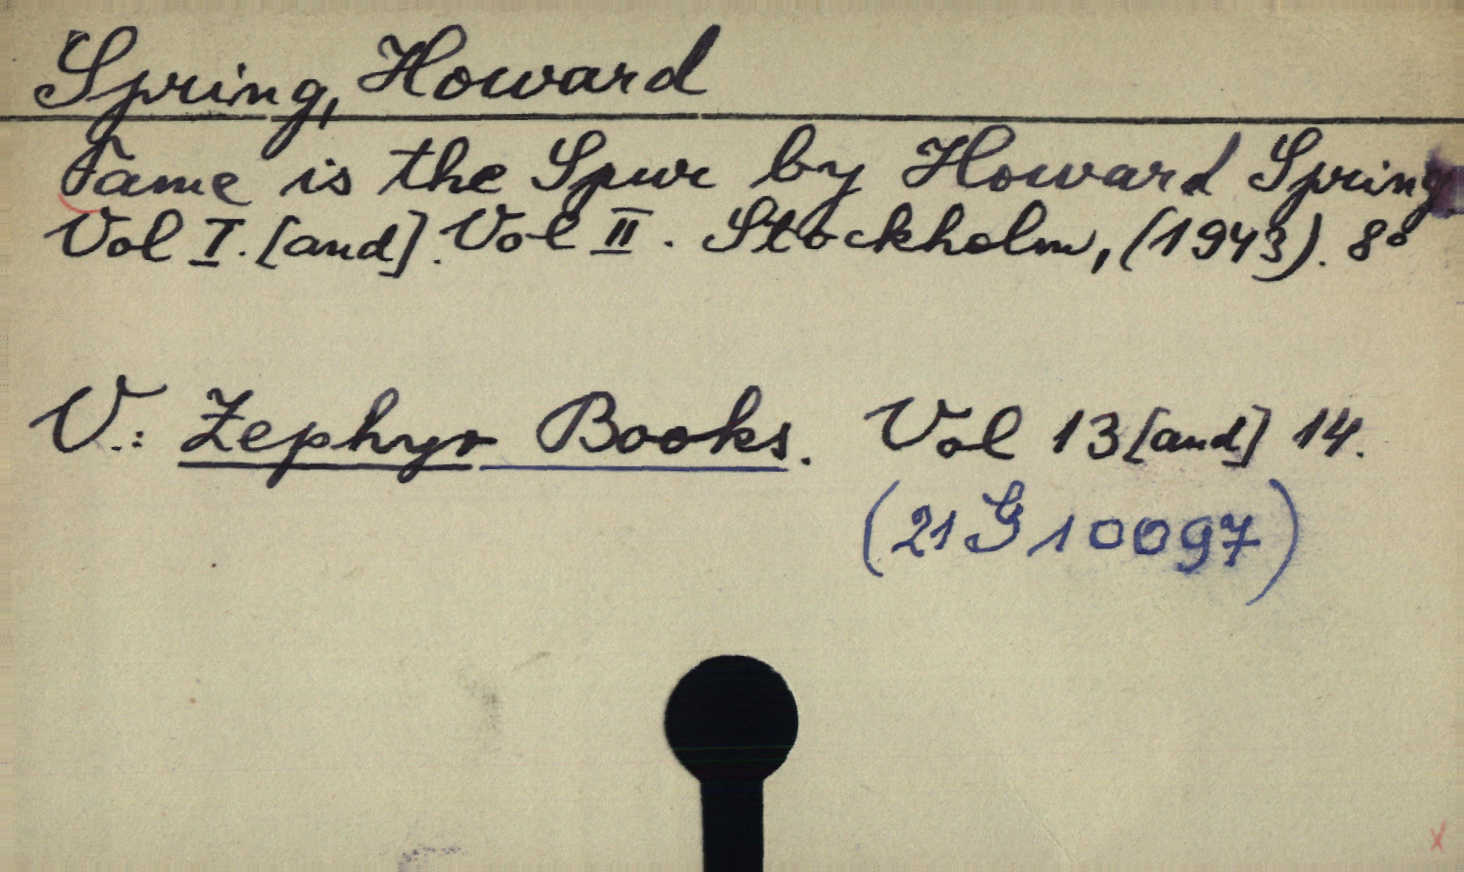 Spring, Howard
Fame is the Spur by Howard Spring
Vol I. [and]. Vol II. Stockholm, (1943). 8°
V.: Zephyr Books. Vol 13 [and] 14.
(21 G 10097)
x